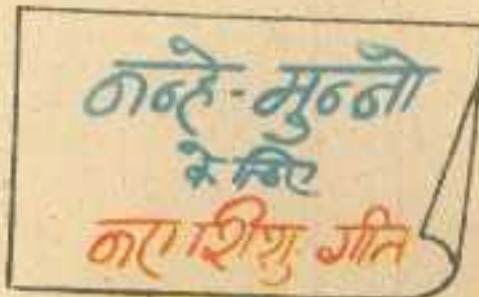 नन्हे-मुन्नो
के लिए
नए शिशु गीत